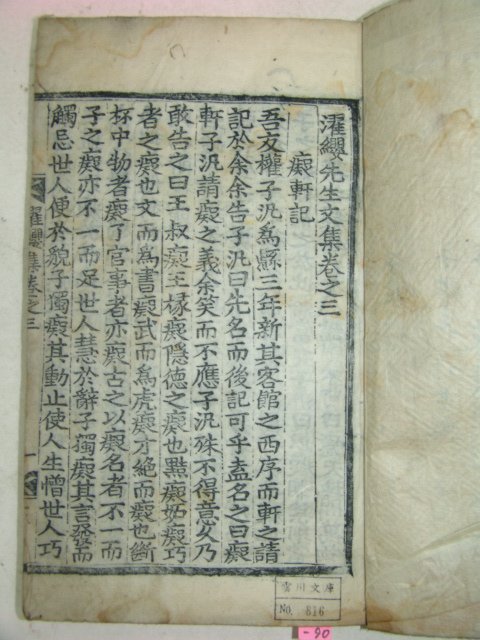 濯纓先生文集卷之三
癡軒記
吾友權子汎爲縣三年新其客館之西序而軒之請
記於余余告子汎曰先名而後記可乎盍名之曰癡
軒子汎請癡之義余笑而不應子汎殊不得意久乃
敢告之曰王叔癡王椽癡隱德之癡也黠癡妬癡巧
者之癡也文而爲書癡武而爲虎癡才絕而癡也銜
杯中物者癡了官事者亦癡古之以癡名者不一而
子之癡亦不一而足世人慧於辭子獨癡其言發而
觸忌世人便於貌子獨癡其動止使人生憎世人巧
濯纓集卷之三
一
雪川文庫
No. 816
-90